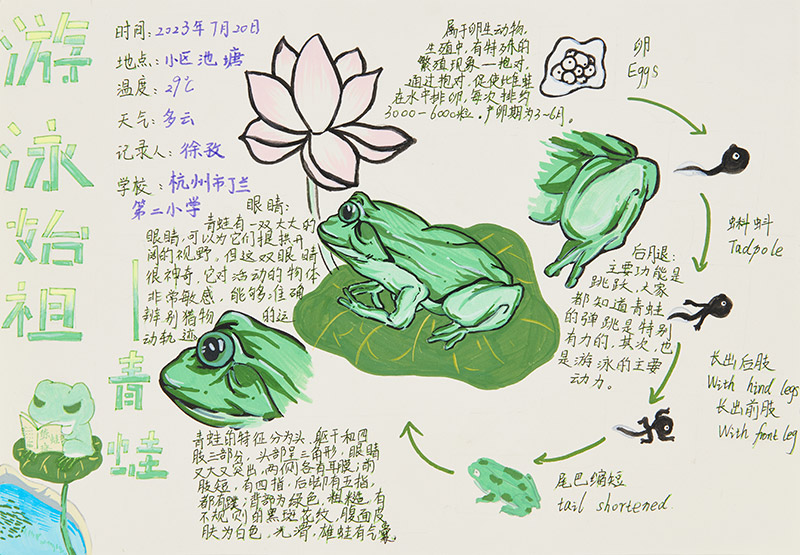 游泳始祖
青蛙
时间:2023年7月20日
地点:小区池塘
温度:29℃
天气:多云
记录人:徐孜
学校:杭州市丁兰
第二小学
眼睛:
青蛙有一双大大的
眼睛,可以为它们提供开
阔的视野,但这双眼睛
很神奇,它对活动的物体
非常敏感,能够准确
辨别猎物的运
动轨迹
属于卵生动物,
生殖中,有特殊的
繁殖现象——抱对,
通过抱对,促使雌蛙
在水中排卵,每次排约
3000-6000粒,产卵期为3~6月。
卵
Eggs
蝌蚪
Tadpole
后腿:
主要功能是
跳跃,大家
都知道青蛙
的弹跳是特别
有力的,其次,也
是游泳的主要
动力。
长出后肢
With hind legs
长出前肢
With front leg
尾巴缩短
tail shortened
青蛙的特征分为头、躯干和四
肢三部分,头部呈三角形,眼睛
又大又突出,两侧各有耳膜;前
肢短,有四指,后脚有五指,
都有蹼;背部为绿色,粗糙,有
不规则的黑斑花纹,腹面皮
肤为白色,光滑,雄蛙有气囊